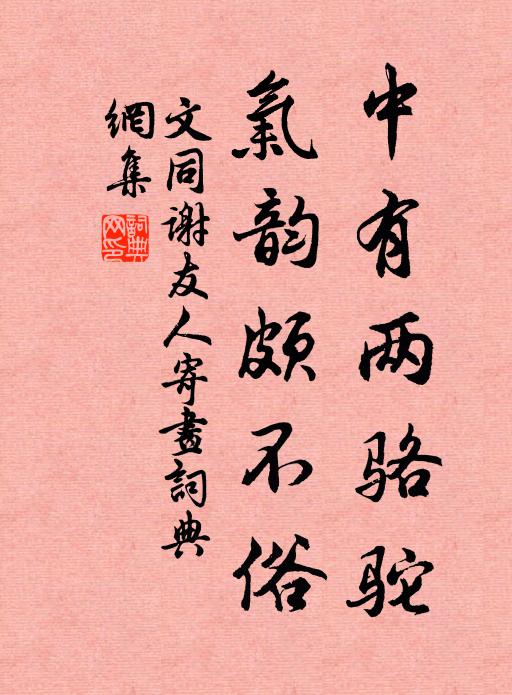 中有两骆驼
氣韵頗不俗
文同謝友人寄畫詞典
網集
詞典
网印